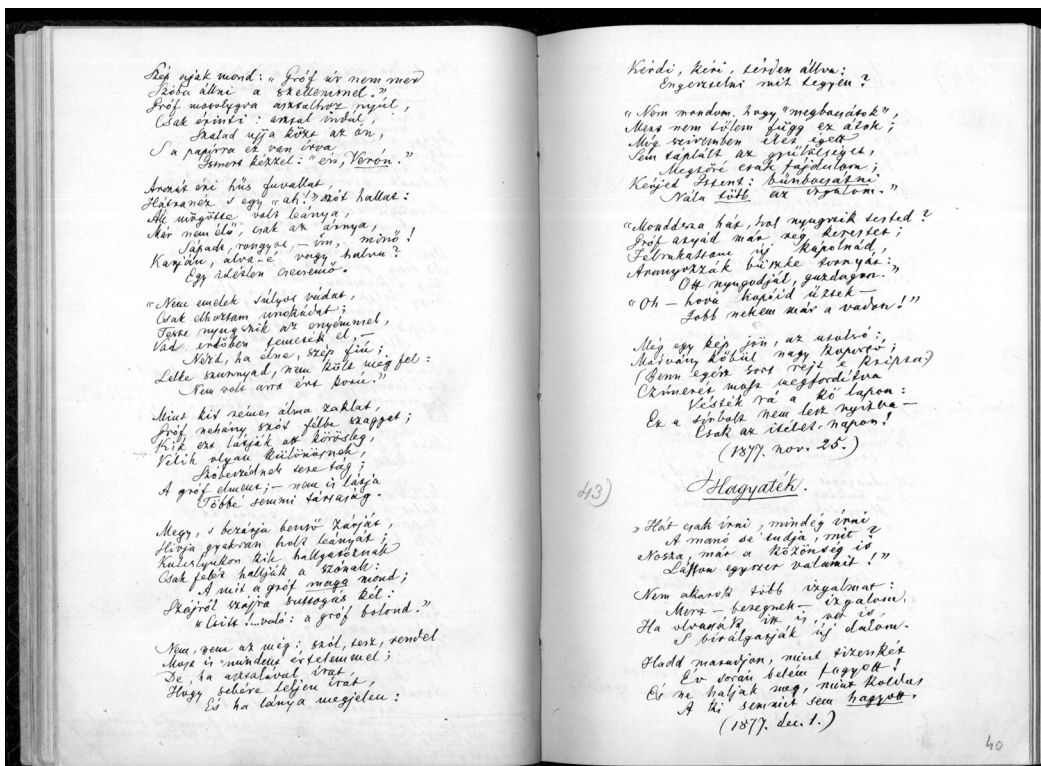 Szép aják mond: „Gróf úr nem mer
Szóba állni a szellemmel."
Gróf mosolygva asztalhoz nyúl,
Csak érinti: asztal indul,
Szalad ujja közt az ón,
S a papirra ez van irva
Ismert kézzel: "én, Verón."
Arczát éri hűs fuvallat,
Hátranéz s egy „ah!" szót hallat:
Áll mögötte volt leánya,
Már nem élő, csak az árnya,
Sápadt, rongyos, – im, minő!
Karján, alva-é vagy halva?
Egy idétlen csecsemő.
„Nem emelek súlyos vádat,
Csak elhoztam unokádat;
Teste nyugszik az enyémmel,
Vad erdőben temették el –
Nézd, ha élne, szép fiú;
Lelke szunnyad, nem költ még fel:
Nem volt arra érett
Mint kit rémes álma zaklat,
Gróf nehány szót félbe szaggat;
Kik ezt látják ott körösleg,
Vélik olyan különösnek,
Szóbeszédnek tere tág;
A gróf elment; – nem is látja
Többé semmi társaság.
Megy, s bezárja benső zárját,
Hívja gyakran holt leányát;
Kulcslyukon kik hallgatóznak
Csak felét hallják a szónak:
A mit a gróf maga mond;
Szájról szájra suttogás kél:
„Csitt!...való: a gróf bolond."
Nem, nem az még: szól, tesz, rendel
Most is mindent értelemmel;
De, ha asztalával irat,
Hogy sebére teljen írat,
És ha lánya megjelen:
Kérdi, kéri, térden állva:
Engesztelni mit tegyen?
„Nem mondom, hogy "megbocsátok",
Mert nem tőlem függ ez átok;
Míg szivemben élet égett
Sem táplált az gyülölséget,
Megtöré csak fájdalom;
Kérjed Istent: bűnbocsátni
Nála több az irgalom."
„Monddsza hát, hol nyugszik tested?
Gróf atyád már rég kerestet;
Felrakattam új kápolnád,
Aranyozzák büszke tornyát:
Ott nyugodjál, gazdagon."
„Oh – hová kopóid űztek –
Jobb nekem már a vadon!"
Még egy kép jön, az utolsó:
Márvány kőbül nagy koporsó;
(Benn egész sort rejt e kripta)
Czímerét most megfordítva
Vésték rá a kő lapon:
Ez a sírbolt nem lesz nyitva –
Csak az itélet-napon!
(1877. nov. 25.)
43)
Hagyaték.
„Hát csak írni, mindég írni
A manó se tudja, mit?
Nosza, már a közönség is
Lásson egyszer valamit!"
Nem akarok több izgalmat:
Mert – betegnek – izgalom,
Ha olvassák itt is, ott is
S birálgatják új dalom.
Hadd maradjon, mint tizenkét
Év során belém fagyott!
És ne haljak meg, mint koldus
A ki semmit sem hagyott.
(1877. dec. 1.)
40